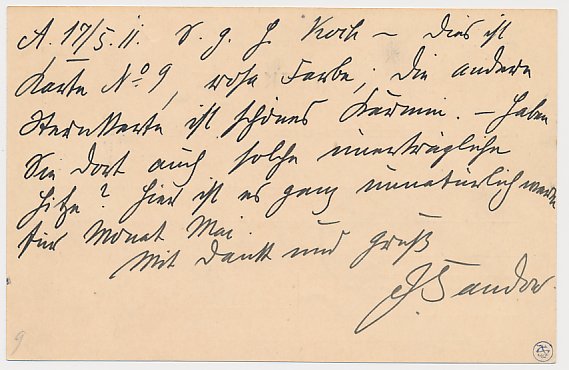 A. 17/5. 11. S. g. H. Koch – Dies ist
Karte No. 9, rosa Farbe; die andere
Sternkarte ist schönes Karmin. – Haben
Sie dort auch solche unerträgliche
Hitze? Hier ist es ganz unnatürlich warm
für Monat Mai.
Mit Dank und Gruß
Sandor
9